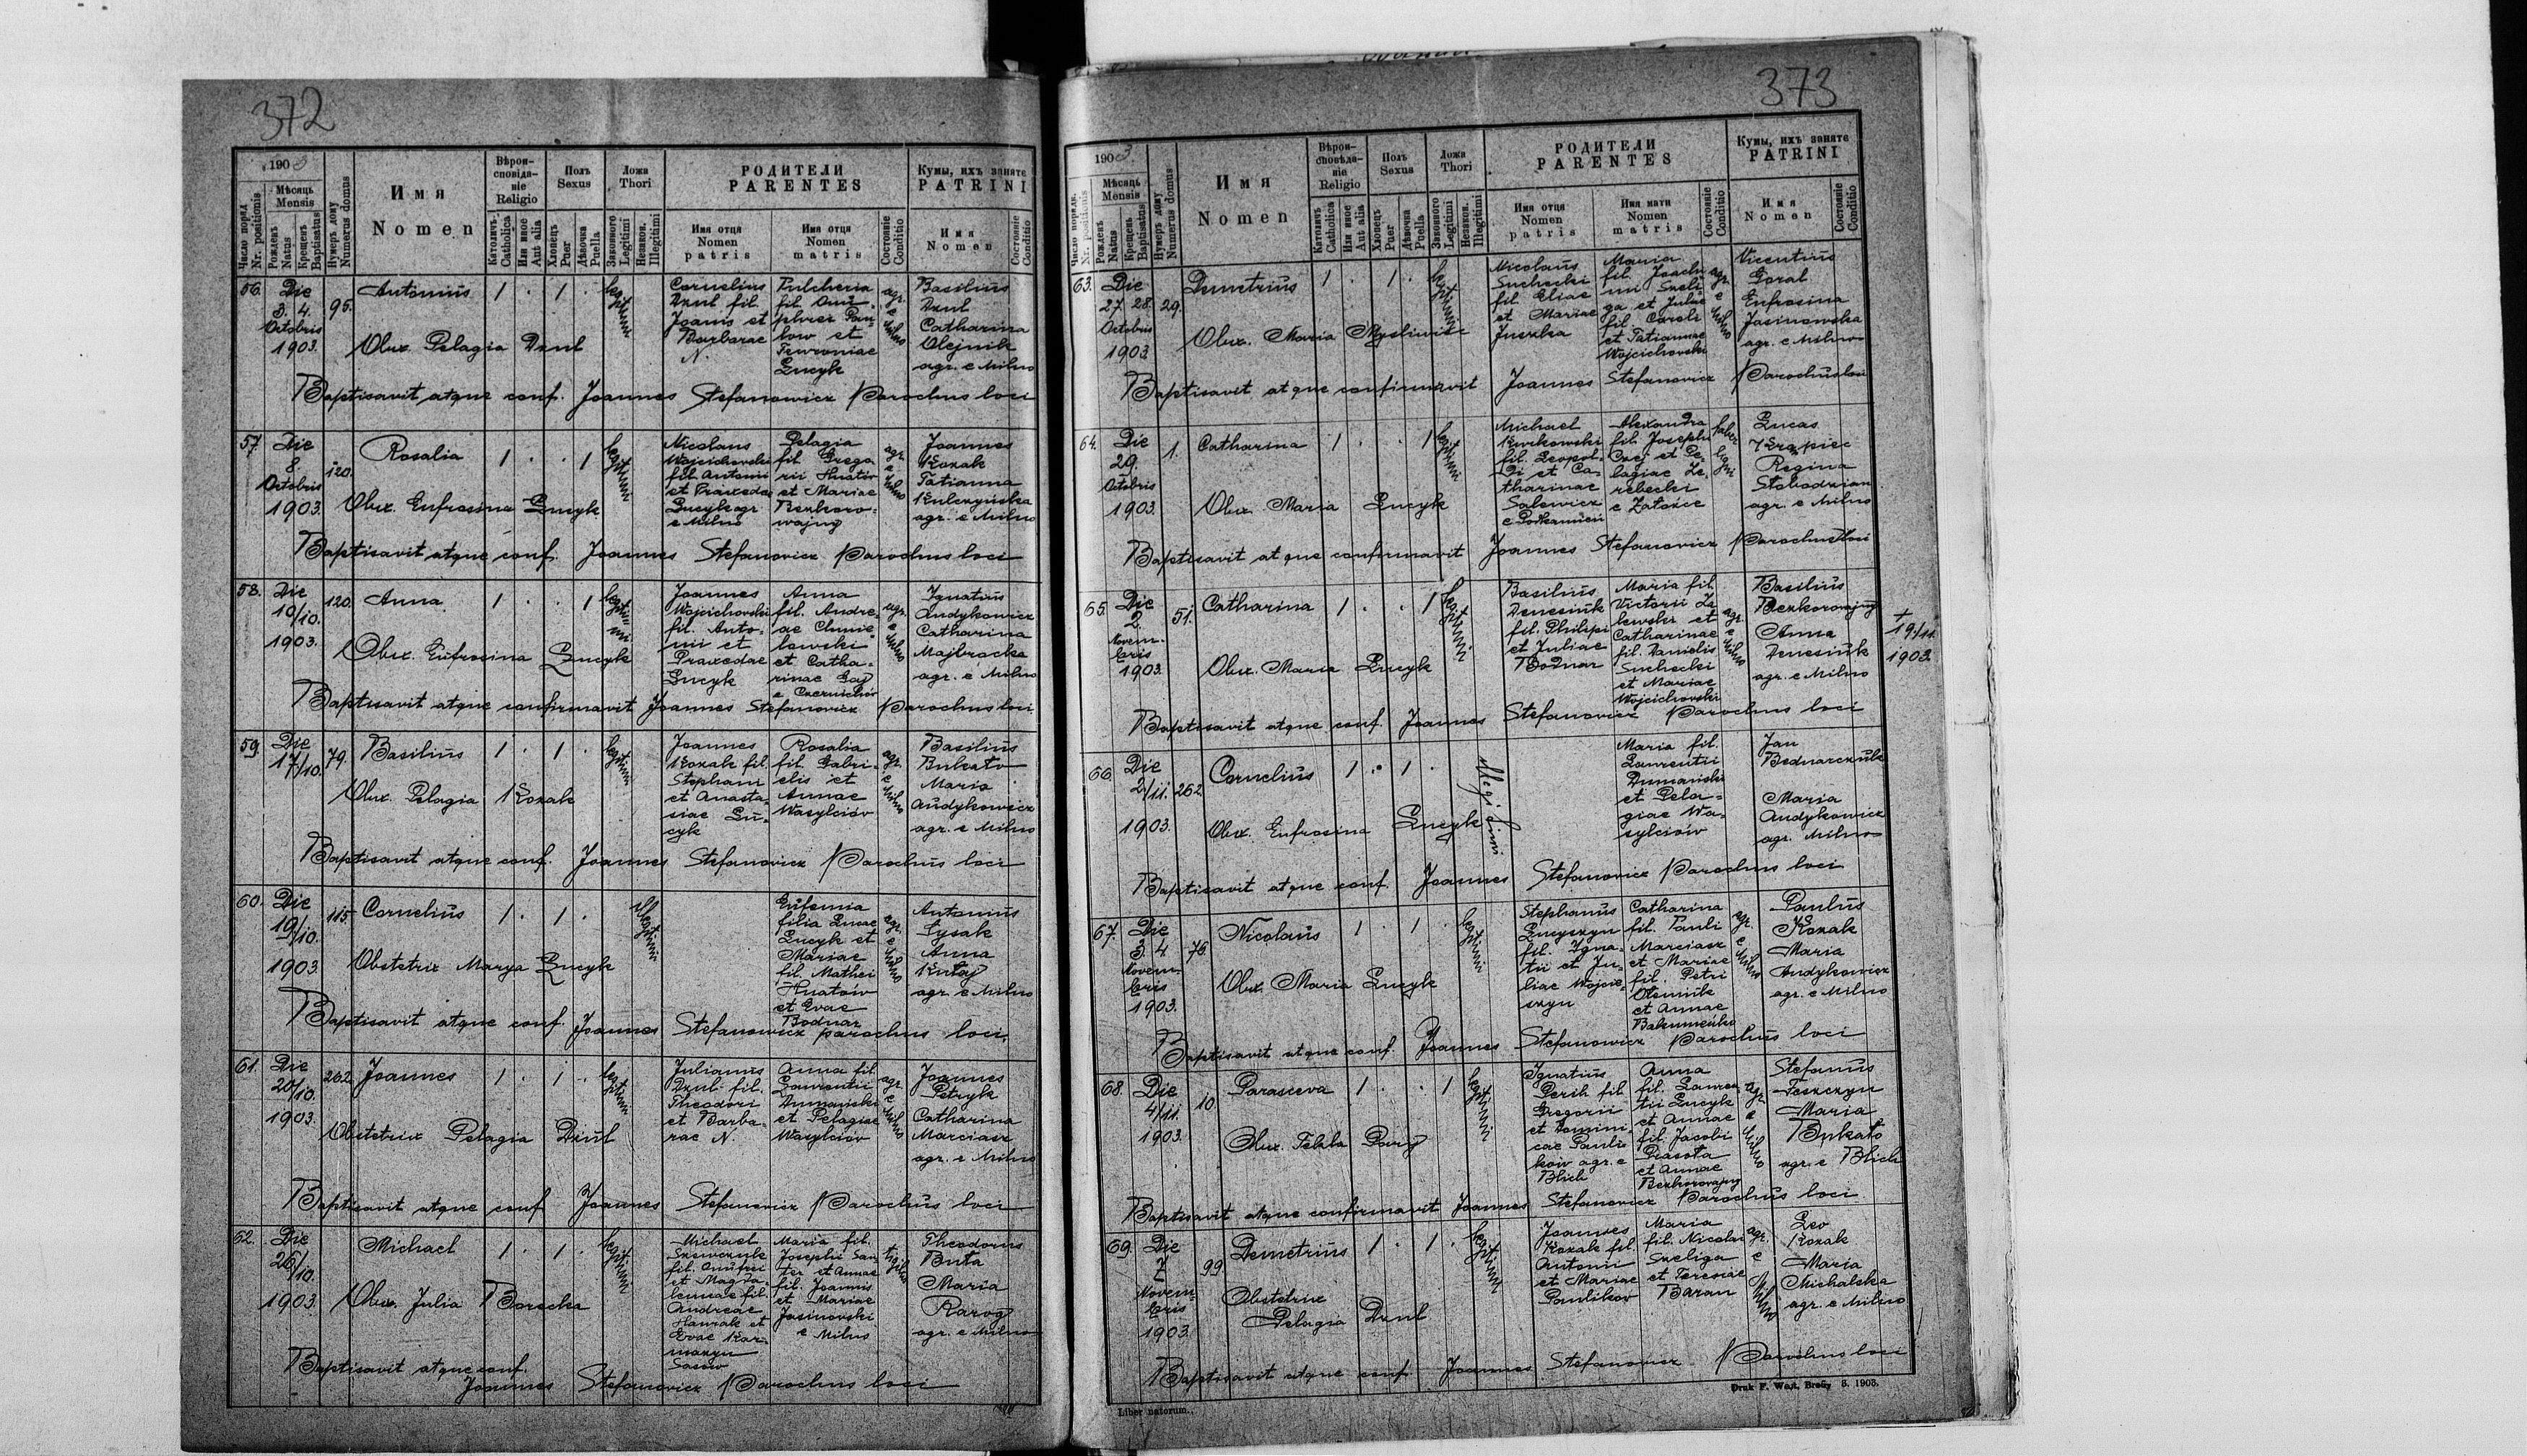 372
1903
Число поряд.
Nr. positionis
Мѣсяць
Mensis
Рожденъ
Natus
Крещенъ
Baptisatus
Нумеръ дому
Numerus domus
Имя
Nomen
Вѣроисповѣданіе
Religio
Католичъ.
Catholica
Или иное
Aut alia
Полъ
Sexus
Хлопецъ
Puer
Дѣвочка
Puella
Ложа
Thori
Законного
Legitimi
Незакон.
Illegitimi
РОДИТЕЛИ
PARENTES
Имя отця
Nomen
patris
Имя отця
Nomen
matris
Состояніе
Conditio
Кумы, ихъ заняте
PATRINI
Имя
Nomen
Состояніе
Conditio
56. Die 3. 4. Octobris 1903. 95. Antonius 1 . 1 . legitimi
Obux. Pelagia Dzul
Cornelius
Dzul fil.
Joanis et
Barbarae
N.
Pulcheria
fil. Onu-
phrei Paw-
low et
Fewroniae
Lucyk
agr. e Milno
Basilius
Dzul
Catharina
Olejnik
agr. e Milno
Baptisavit atque conf. Joannes Stefanowicz Parochus loci
57. Die 8. Octobris 1903. 120. Rosalia 1 . . 1 legitimi
Obux. Eufrosina Lucyk
Nicolaus
Wojcichowski
fil. Antonii
et Praxedae
Lucyk agr
e Milno
Pelagia
fil. Grego
rii Hnatiw
et Mariae
Bezkoro-
wajny
agr. e Milno
Joannes
Kozak
Tatianna
Kulczyńska
agr. e Milno
Baptisavit atque conf. Joannes Stefanowicz Parochus loci
58. Die 10/10. 1903. 120. Anna 1 . . 1 legitimi
Obux. Eufrosina Lucyk
Joannes
Wojcichowski
fil. Anto-
nii et
Praxedae
Lucyk
Anna
fil. Andre-
ae Chmie-
lowski
et Catha-
rinae Gaj
e Czernichów
agr. e Milno
Ignatius
Andykowicz
Catharina
Majbrocka
agr. e Milno
Baptisavit atque confirmavit Joannes Stefanowicz Parochus loci
59. Die 17/10. 1903. 79. Basilius 1 . 1 . legitimi
Obux. Pelagia Kozak
Joannes
Kozak fil.
Stephani
et Anasta-
siae Lu-
cyk
Rosalia
fil. Gabri-
elis et
Annae
Wasylciów
agr. e Milno
Basilius
Bukato
Maria
Andykowicz
agr. e Milno
Baptisavit atque conf. Joannes Stefanowicz Parochus loci
60. Die 19/10. 1903. 115 Cornelius 1 . 1 . illegitimi
Obstetrix Marya Lucyk
Eufemia
filia Lucae
Lucyk et
Mariae
fil. Mathei
Hnatów
et Evae
Bodnar
agr. e Milno
Antonius
Lysak
Anna
Kutaj
agr. e Milno
Baptisavit atque conf. Joannes Stefanowicz parochus loci.
61. Die 20/10. 1903. 262 Joannes 1 . 1 . legitimi
Obstetrix Pelagia Dzul
Julianus
Dzul fil.
Theodori
et Barba-
rae N.
Anna fil.
Laurentii
Dumański
et Pelagiae
Wasylciów
agr. e Milno
Joannes
Petryk
Catharina
Marciasz
agr. e Milno
Baptisavit atque conf Joannes Stefanowicz Parochus loci
62. Die 26/10. 1903. Michael 1 . 1 . legitimi
Obux. Julia Borecka
Michael
Szewczuk
fil. Onufrei
et Magda-
lenae fil.
Andreae
Hanzak et
Evae Kar-
mazyn
Sasów
Maria fil.
Josephi San-
ter et Annae
fil. Joannis
et Mariae
Jasinowski
e Milno
Theodorus
Buta
Maria
Karog
agr. e Milno
Baptisavit atque conf.
Joannes Stefanowicz Parochus loci
373
1903
Число поряд.
Nr. positionis
Мѣсяць
Mensis
Рожденъ
Natus
Крещенъ
Baptisatus
Нумеръ дому
Numerus domus
Имя
Nomen
Вѣроисповѣданіе
Religio
Католичъ.
Catholica
Или иное
Aut alia
Полъ
Sexus
Хлопецъ
Puer
Дѣвочка
Puella
Ложа
Thori
Законного
Legitimi
Незакон.
Illegitimi
РОДИТЕЛИ
PARENTES
Имя отця
Nomen
patris
Имя мати
Nomen
matris
Состояніе
Conditio
Кумы, ихъ заняте
PATRINI
Имя
Nomen
Состояніе
Conditio
63. Die 27. 28. Octobris 1903 29. Demetrius 1 . 1 . legitimi
Obux. Maria Mysliwiec
Nicolaus
Suchecki
fil. Eliae
et Mariae
Juszka
Maria
fil. Joach
imi Szeli-
ga et Juliae
fil. Caroli
et Tatiannae
Wojcichowski
agr. e Milno
Vicentius
Goral
Eufrosina
Jasinowska
agr. e Milno
Baptisavit atque confirmavit Joannes Stefanowicz Parochus loci
64. Die 29. Octobris 1903 1. Catharina 1 . . 1 legitimi
Obux. Maria Lucyk
Michael
Kwikowski
fil. Leopol-
di et Ca-
tharinae
Salewicz
e Podkamień
Alexandra
fil. Josephi
Czej et Pe-
lagiae Ze-
rebecki
e Załoźce
faber ligni
Lucas
Krzpiec
Regina
Slobodzian
agr. e Milno
Baptisavit atque confirmavit Joannes Stefanowicz Parochus loci
65. Die 2. Novembris 1903. 51. Catharina 1 . . 1 legitimi
Obux. Maria Lucyk
Basilius
Denesiuk
fil. Philipi
et Juliae
Bodnar
Maria fil.
Victorii Za
lewski et
Catharinae
fil. Danielis
Suchecki
et Mariae
Wojcichowski
agr. e Milno
Basilius
Bezkorowajny
Anna
Denesiuk
agr. e Milno
+
19/11.
1903.
Baptisavit atque conf. Joannes Stefanowicz Parochus loci
66. Die 2/11. 1903. 262 Cornelius 1 . 1 . Illegitimi
Obux. Eufrosina Lucyk
Maria fil.
Laurentii
Dumański
et Pela-
giae Wa-
sylciów
Jan
Bednarczuk
Maria
Andykowicz
agr. Milno
Baptisavit atque conf. Joannes Stefanowicz Parochus loci
67. Die 3. 4 Novembris 1903. 76. Nicolaus 1 . 1 . legitimi
Obux. Maria Lucyk
Stephanus
Lucyszyn
fil. Igna-
tii et Ju-
liae Wojcie-
szyn
Catharina
fil. Pauli
Marciasz
et Mariae
fil. Petri
Olenuik
et Annae
Bakumeńko
agr. e Milno
Paulus
Kozak
Maria
Andykowicz
agr. e Milno
Baptisavit atque conf. Joannes Stefanowicz Parochus loci
68. Die 4/11 1903. 10 Parasceva 1 . . 1 legitimi
Obux. Tekla Parij
Ignatius
Perih fil.
Gregorii
et Domini-
cae Pauli-
ków agr. e
Blich
Anna
fil. Lauren-
tii Lucyk
et Annae
fil. Jacobi
Piasota
et Annae
Bezkorowajny
agr. e Milno
Stefanus
Feszczyn
Maria
Bukato
agr. e Blich
Baptisavit atque confirmavit Joannes Stefanowicz Parochus loci
69. Die 7 Novembris 1903. 99 Demetrius 1 . 1 . legitimi
Obstetrix
Pelagia Dzul
Joannes
Kozak fil.
Antonii
et Mariae
Paulikow
Maria
fil. Nicolai
Szeliga
et Teresiae
Baran
agr. e Milno
Leo
Kozak
Maria
Michalska
agr. e Milno
Baptisavit atque conf. Joannes Stefanowicz Parochus loci
Liber natorum.
Druk F. West, Brody 3. 1903.